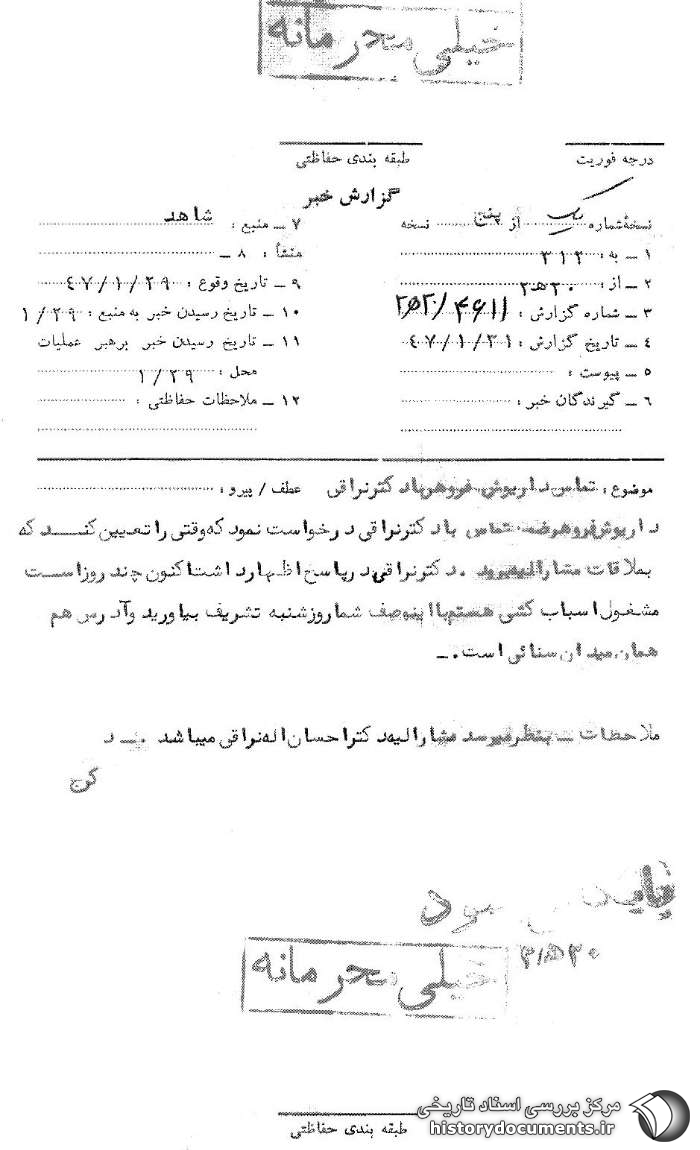 خیلی محرمانه
درجه فوریت
طبقه بندی حفاظتی
گزارش خبر
نسخهٔ شماره یک از پنج نسخه
۱ ـ به : ۳۱۲
۲ ـ از : ۲۰ ه ۲
۳ ـ شماره گزارش :
۴ ـ تاریخ گزارش : ۴۷/۱/۳۱
۵ ـ پیوست :
۶ ـ گیرندگان خبر :
۷ ـ منبع : شاهد
۸ ـ منشأ :
۹ ـ تاریخ وقوع : ۴۷/۱/۲۹
۱۰ ـ تاریخ رسیدن خبر به منبع : ۱/۲۹
۱۱ ـ تاریخ رسیدن خبر برهبر عملیات
محل : ۱/۲۹
۱۲ ـ ملاحظات حفاظتی :
موضوع : تماس داریوش فروهر با دکتر نراقی عطف / پیرو :
داریوش فروهر ضمن تماس با دکتر نراقی درخواست نمود که وقتی را تعیین کند که
بملاقات مشارالیه برود . دکتر نراقی در پاسخ اظهار داشت اکنون چند روز است
مشغول اسباب کشی هستم با اینوصف شما روز شنبه تشریف بیاورید و آدرس هم
همان میدان سنائی است .ـ
ملاحظات ـ بنظر میرسد مشارالیه دکتر احسان اله نراقی میباشد . ـ د
کرج
خیلی محرمانه
طبقه بندی حفاظتی
مرکز بررسی اسناد تاریخی
historydocuments.ir